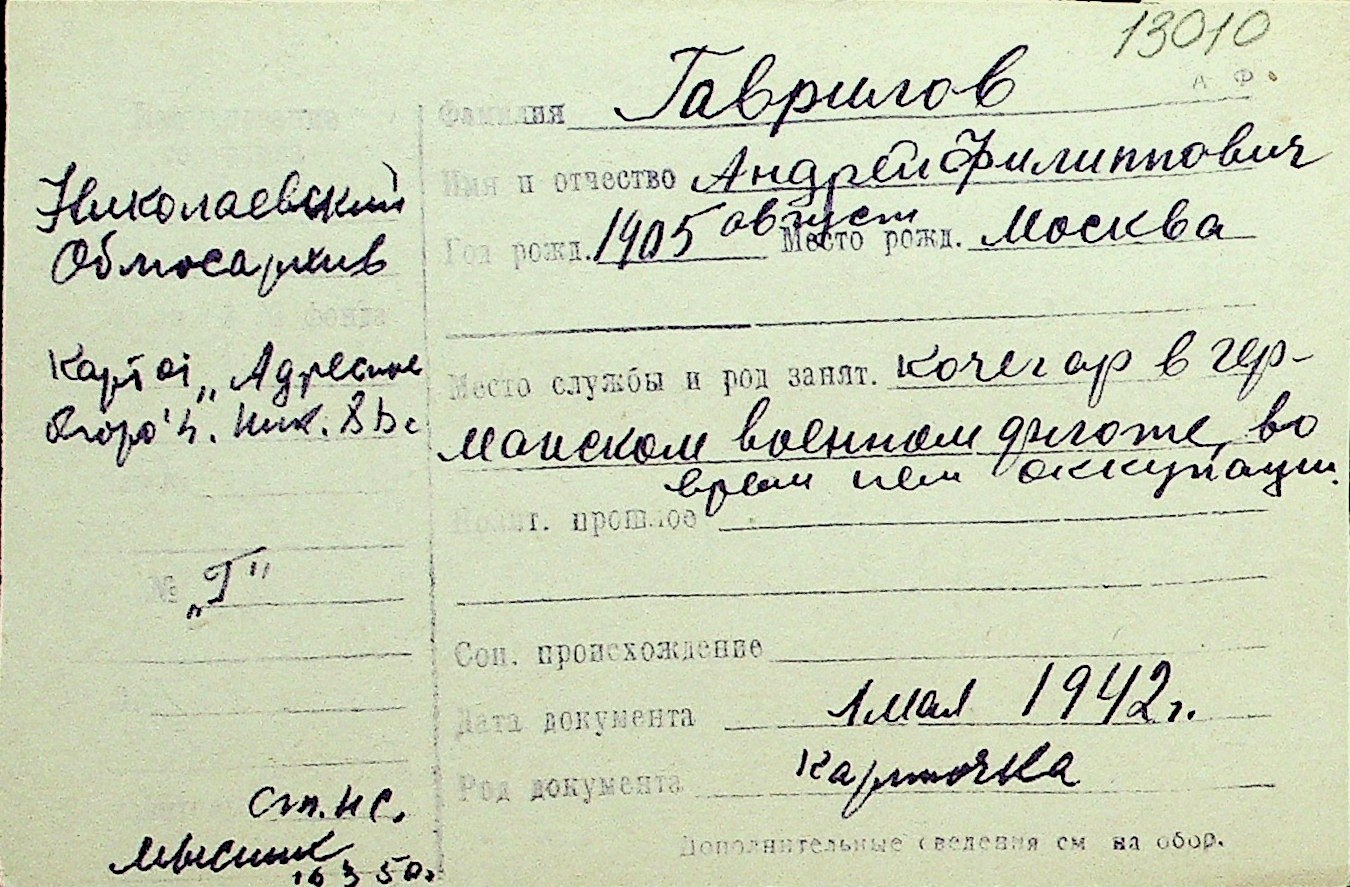 13010
А Ф.
Фамилия Гаврилов
Имя и отчество Андрей Филиппович
Год рожд. 1905 август Место рожд. Москва
Место службы и род занят. кочегар в гер-
манском военном флоте, во
врем нем оккупации.
Полит. прошлое
Соц. происхождение
Дата документа 1 мая 1942 г.
Род документа карточка
Дополнительные сведения см на обор.
Николаевский
Облгосархив
№ фонда
Карт "Адресное
Ник.
№ „Г"
ст. нс.
16 3 50 г.